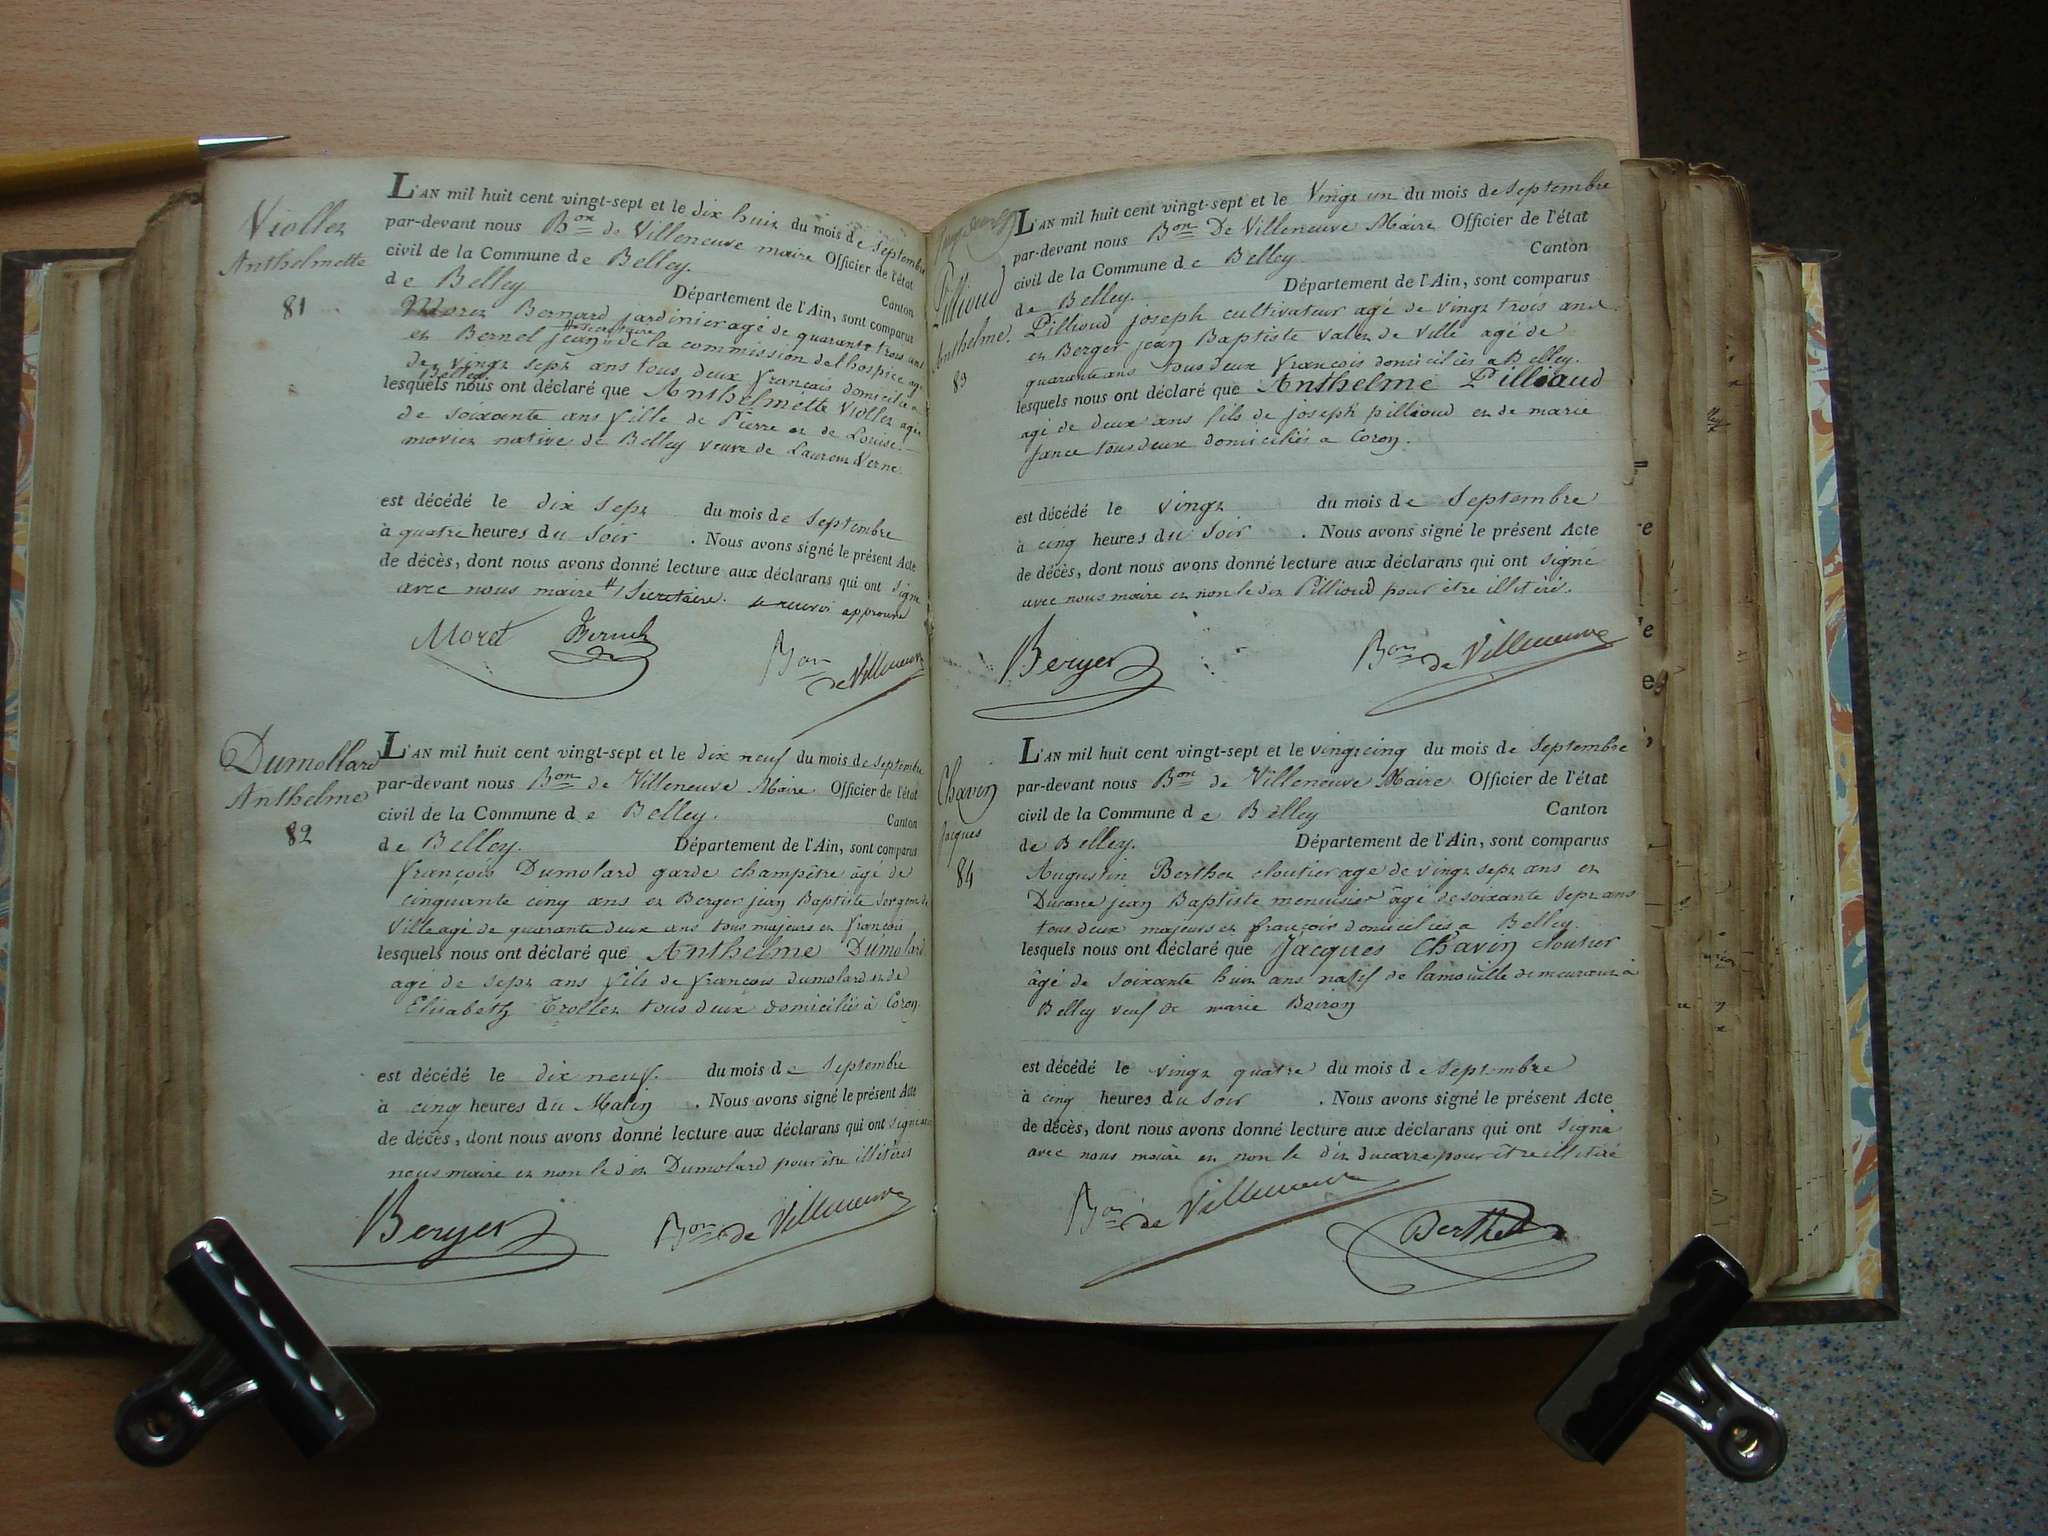 Viollet
Anthelmette
81
L'AN mil huit cent vingt-sept et le dix huit du mois de Septembre
par-devant nous Bon de Villeneuve maire Officier de l'état
civil de la Commune de Belley. Canton
de Belley Département de l'Ain, sont comparus
Moret Bernard jardinier agé de quarante trois ans
et Bernel jean # secretaire de la commission de l'hospice agé
de vingt sept ans tous deux français domiciliés a
Belley.
lesquels nous ont déclaré que Anthelmette Viollet agée
de soixante ans fille de Pierre et de Louise
moviez native de Belley veuve de Laurent Verne
est décédé le dix sept du mois de Septembre
à quatre heures du Soir . Nous avons signé le présent Acte
de décès, dont nous avons donné lecture aux déclarans qui ont signé
avec nous maire # Secretaire. approuvé
Moret
Bon de Villeneuve
Dumollard
Anthelme
82
L'AN mil huit cent vingt-sept et le dix neuf du mois de Septembre
par-devant nous Bon de Villeneuve Maire Officier de l'état
civil de la Commune de Belley. Canton
de Belley. Département de l'Ain, sont comparus
françois Dumolard garde champêtre âgé de
cinquante cinq ans et Berger jean Baptiste Sergent de
Ville agé de quarante deux ans tous majeurs et françois
lesquels nous ont déclaré que Anthelme Dumolard
agé de sept ans fils de françois dumolard et de
Elisabeth Trollet tous deux domiciliés à Coron
est décédé le dix neuf. du mois de Septembre
à cinq heures du Matin . Nous avons signé le présent Acte
de décès, dont nous avons donné lecture aux déclarans qui ont signé avec
nous maire et non le dit Dumolard pour être illitéris
Berger Bon de Villeneuve
Pillioud
Anthelme.
83
L'AN mil huit cent vingt-sept et le Vingt un du mois de Septembre
par-devant nous Bon De Villeneuve Maire Officier de l'état
civil de la Commune de Belley Canton
de Belley. Département de l'Ain, sont comparus
Pillioud joseph cultivateur agé de vingt trois ans
et Berger jean Baptiste Valet de Ville agé de
quarante ans tous deux françois domiciliés a Belley.
lesquels nous ont déclaré que Anthelme Pillioud
agé de deux ans fils de joseph pillioud et de marie
jance tous deux domiciliés a Coron.
est décédé le vingt du mois de Septembre
à cinq heures du Soir . Nous avons signé le présent Acte
de décès, dont nous avons donné lecture aux déclarans qui ont signé
avec nous maire et non le dit Pillioud pour être illitéris.
Berger Bon de Villeneuve
Chavin
Jacques
84
L'AN mil huit cent vingt-sept et le vingtcinq du mois de Septembre
par-devant nous Bon de Villeneuve Maire Officier de l'état
civil de la Commune de Belley Canton
de Belley. Département de l'Ain, sont comparus
Augustin Berthet cloutier age de vingt sept ans et
Ducarre jean Baptiste menuisier âgé de soixante sept ans
tous deux majeurs et françois domiciliés a Belley.
lesquels nous ont déclaré que Jacques Chavin cloutier
âgé de soixante huit ans natif de lamouille demeurant à
Belley veuf de marie Boiron
est décédé le vingt quatre du mois de Septembre
à cinq heures du Soir . Nous avons signé le présent Acte
de décès, dont nous avons donné lecture aux déclarans qui ont signé
avec nous maire et non le dit ducarre pour être illitéré
Bon de Villeneuve
Berthet